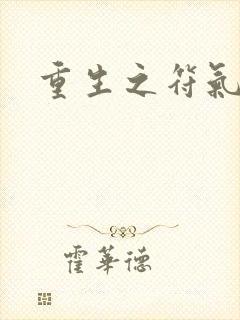 重生之符氣
霍華德